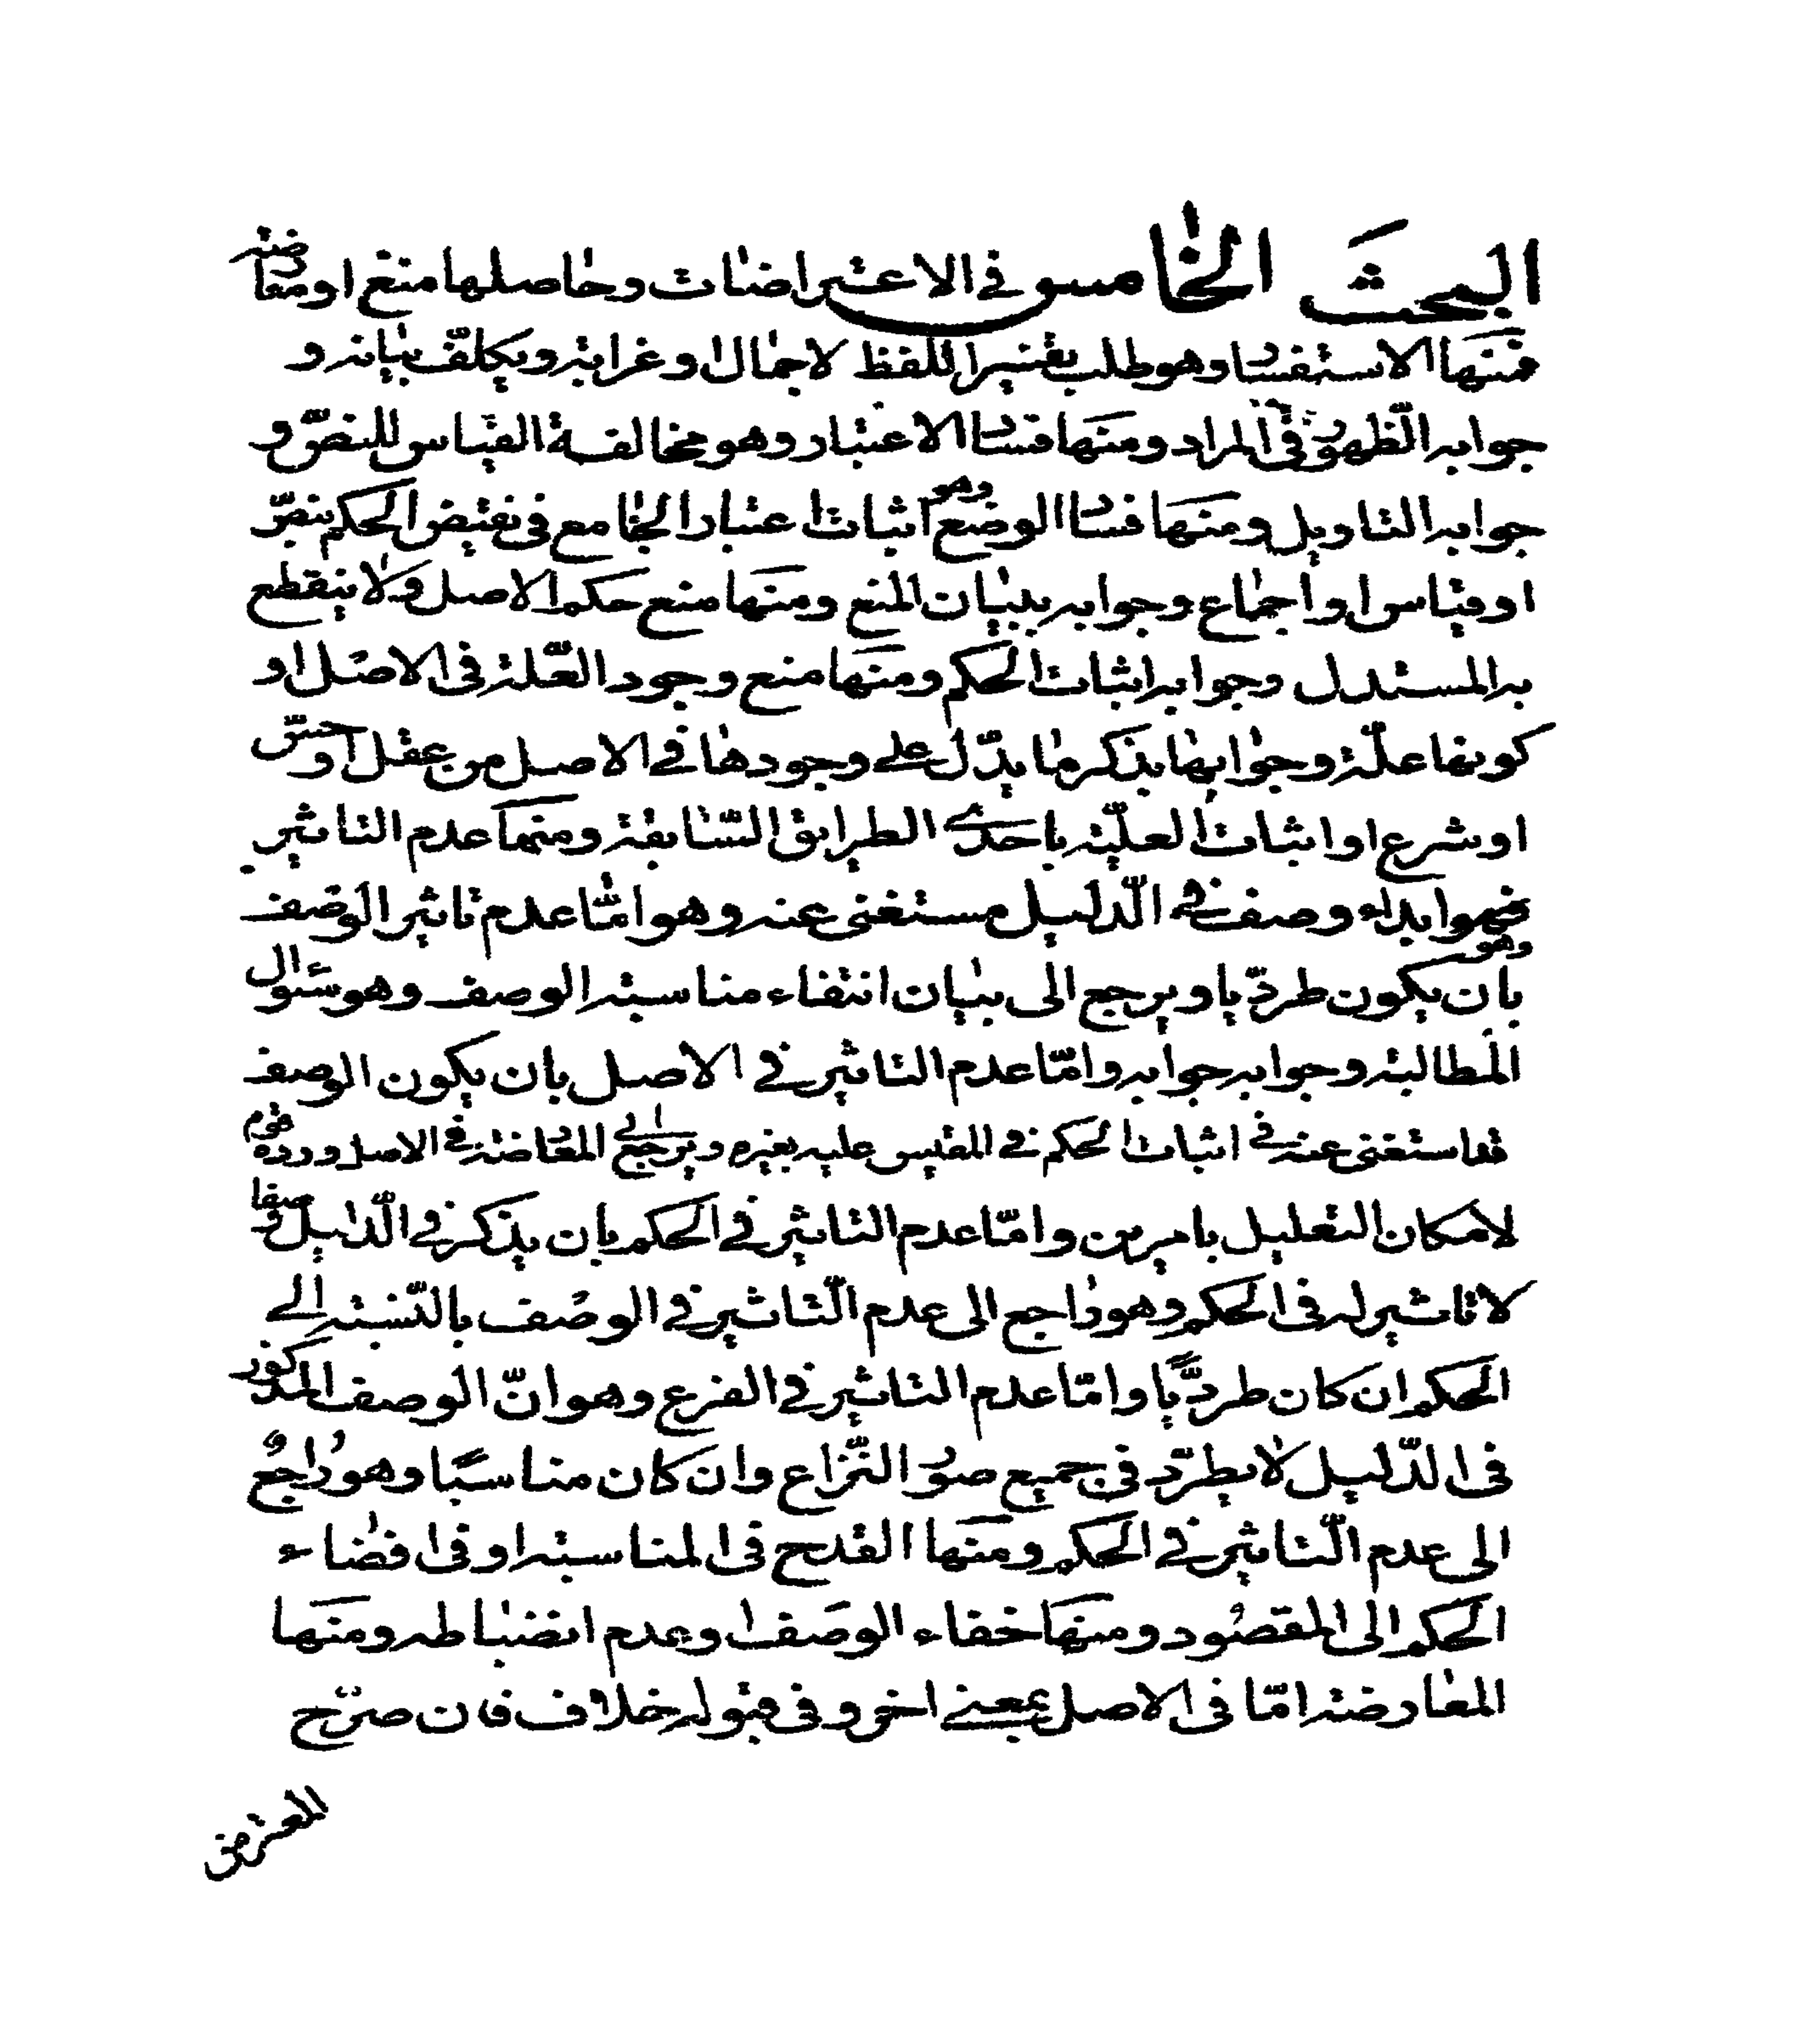 البحث الخامس في الاعتراضات وحاصلها منع او معارضة
فمنها الاستفسار وهو طلب تفسير اللفظ لاجمال او غرابة ويكلف ببيانه و
جوابه الظهور في المراد ومنها فساد الاعتبار وهو مخالفة القياس للنصّ و
جوابه التاويل ومنها فساد الوضع وهو اثبات اعتبار الجامع في نقيض الحكم بنصّ
او قياس او اجماع وجوابه ببيان المنع ومنها منع حكم الاصل ولا ينقطع
به المستدل وجوابه اثبات الحكم ومنها منع وجود العلّة في الاصل او
كونها علّة وجوابها بذكر ما يدّل على وجودها في الاصل من عقل او حسّ
او شرع او اثبات العليّة باحدى الطرايق السّابقة ومنها عدم التاثير
فهو ابداء وصف في الدليل مستغنى عنه وهو امّا عدم تاثير الوصف
وهو بان يكون طرديّا ويرجع الى بيان انتفاء مناسبة الوصف وهو سئوال
المطالبة وجوابه جوابه وامّا عدم التاثير في الاصل بان يكون الوصف
قد استغنى عنه في اثبات الحكم في المقيس عليه بغيره ويرجع الى المعارضة في الاصل ورده قوم
لامكان التعليل بامرين وامّا عدم التاثير في الحكم بان يذكر في الدّليل وصفا
لا تاثير له في الحكم وهو راجع الى عدم التّاثير في الوصف بالنّسبة الى
الحكم ان كان طرديّا وامّا عدم التاثير في الفرع وهو انّ الوصف المذكور
في الدّليل لا يطرّد في جميع صور النّزاع وان كان مناسبًا وهو راجع
الى عدم التّاثير في الحكم ومنها القدح في المناسبة او في افضاء
الحكم الى المقصود ومنها خفاء الوصف او عدم انضباطه ومنها
المعارضة امّا في الاصل بمعنى اخر و في قبوله خلاف فان صرّح
المعترض